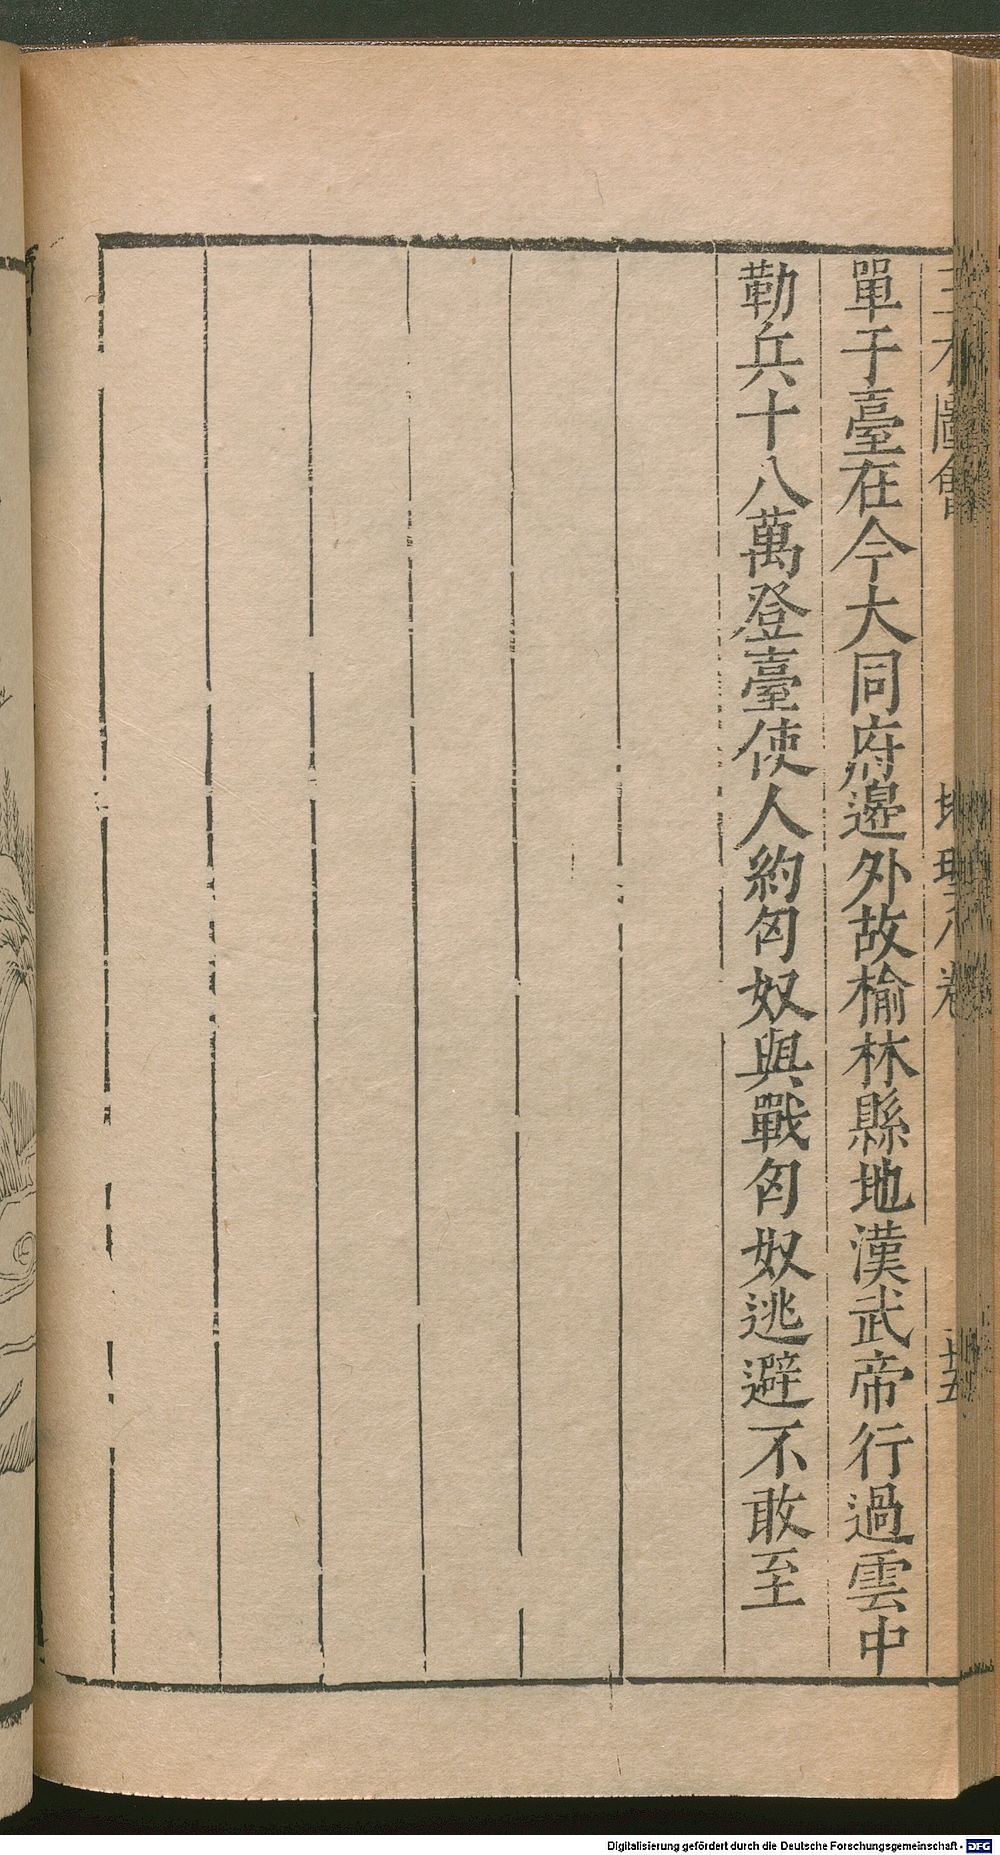 三才圖會 地理八卷 十五
單于臺在今大同府邊外故榆林縣地漢武帝行過雲中
勒兵十八萬登臺使人約匈奴與戰匈奴逃避不敢至
Digitalisierung gefördert durch die Deutsche Forschungsgemeinschaft - DFG